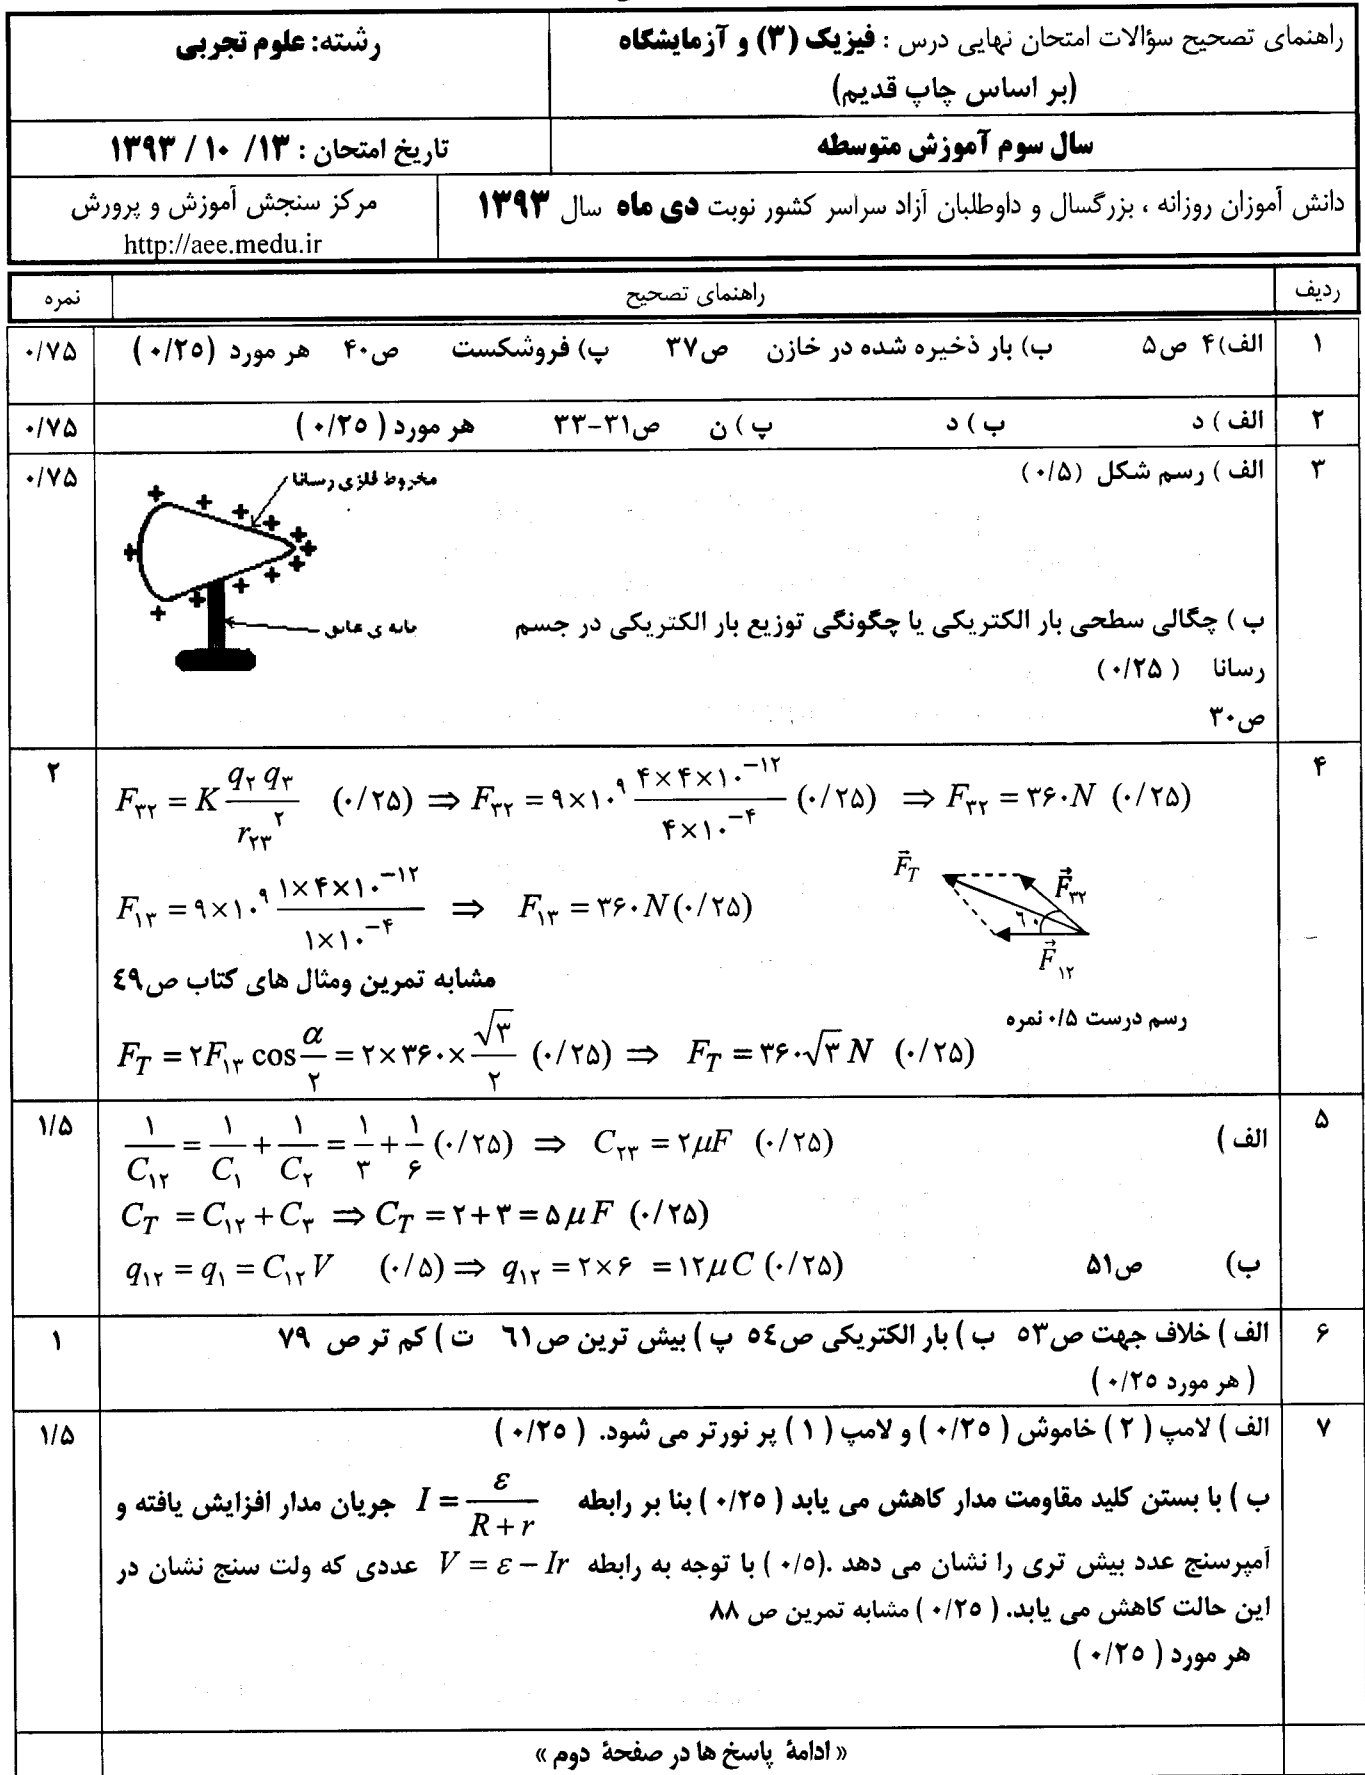 راهنمای تصحیح سؤالات امتحان نهایی درس : فیزیک (۳) و آزمایشگاه
(بر اساس چاپ قدیم)
رشته: علوم تجربی
سال سوم آموزش متوسطه
تاریخ امتحان : ۱۳/ ۱۰ / ۱۳۹۳
دانش آموزان روزانه ، بزرگسال و داوطلبان آزاد سراسر کشور نوبت دی ماه سال ۱۳۹۳
مرکز سنجش آموزش و پرورش
http://aee.medu.ir
ردیف راهنمای تصحیح نمره
۱ الف)۴ ص۵ ب) بار ذخیره شده در خازن ص۳۷ پ) فروشکست ص۴۰ هر مورد (۰/۲۵) ۰/۷۵
۲ الف ) د ب ) د پ ) ن ص۳۱-۳۳ هر مورد ( ۰/۲۵) ۰/۷۵
۳ الف ) رسم شکل (۰/۵) ۰/۷۵
مخروط فلزی رسانا
پایه ی عایق
ب ) چگالی سطحی بار الکتریکی یا چگونگی توزیع بار الکتریکی در جسم
رسانا ( ۰/۲۵)
ص۳۰
۴ F_۳۲ = K q_۲ q_۳ / r_۲۳^۲ (۰/۲۵) ⇒ F_۳۲ = ۹×۱۰^۹ ۴×۴×۱۰^−۱۲ / ۴×۱۰^−۴ (۰/۲۵) ⇒ F_۳۲ = ۳۶۰N (۰/۲۵) ۲
F_۱۳ = ۹×۱۰^۹ ۱×۴×۱۰^−۱۲ / ۱×۱۰^−۴ ⇒ F_۱۳ = ۳۶۰N(۰/۲۵)
F_T F_۳۲ ٦۰ F_۱۲
مشابه تمرین ومثال های کتاب ص٤٩
رسم درست ۰/۵ نمره
F_T = ۲F_۱۳ cos α/۲ = ۲×۳۶۰×√۳/۲ (۰/۲۵) ⇒ F_T = ۳۶۰√۳ N (۰/۲۵)
۵ الف ) ۱/C_۱۲ = ۱/C_۱ + ۱/C_۲ = ۱/۳ + ۱/۶ (۰/۲۵) ⇒ C_۲۳ = ۲μF (۰/۲۵) ۱/۵
C_T = C_۱۲ + C_۳ ⇒ C_T = ۲+۳ = ۵μF (۰/۲۵)
ب) ص۵۱ q_۱۲ = q_۱ = C_۱۲V (۰/۵) ⇒ q_۱۲ = ۲×۶ = ۱۲μC (۰/۲۵)
۶ الف ) خلاف جهت ص۵۳ ب ) بار الکتریکی ص٥٤ پ ) بیش ترین ص٦١ ت ) کم تر ص ۷۹ ۱
( هر مورد ۰/۲۵)
۷ الف ) لامپ ( ۲ ) خاموش ( ۰/۲۵ ) و لامپ ( ۱ ) پر نورتر می شود. ( ۰/۲۵) ۱/۵
ب ) با بستن کلید مقاومت مدار کاهش می یابد ( ۰/۲۵ ) بنا بر رابطه I = ε / R + r جریان مدار افزایش یافته و
آمپرسنج عدد بیش تری را نشان می دهد .(۰/۵ ) با توجه به رابطه V = ε − Ir عددی که ولت سنج نشان در
این حالت کاهش می یابد. ( ۰/۲۵ ) مشابه تمرین ص ۸۸
هر مورد ( ۰/۲۵ )
« ادامهٔ پاسخ ها در صفحهٔ دوم »